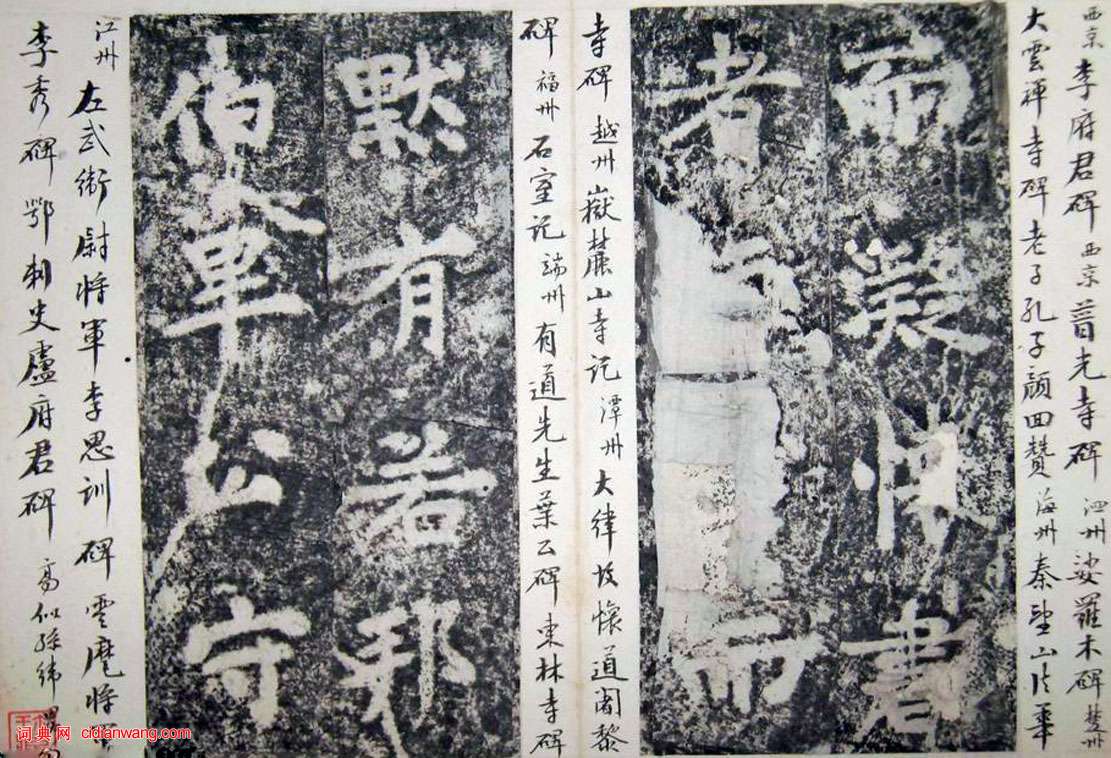 西京 李府君碑 西京 普光寺碑 泗州 娑羅木碑 楚州
大雲禪寺碑 老子孔子顔回贊 海州 秦望山法華
而 書
者 而
寺碑 越州 嶽麓山寺記 潭州 大律故懷道闍黎
碑 福州 石室記 端州 有道先生葉公碑 東林寺碑
默有若邦
伯畢公守
江州 左武衛尉將軍李思訓碑 雲麾將軍
李秀碑 鄂刺史盧府君碑 高似孫緯
词典网 cidianwang.com